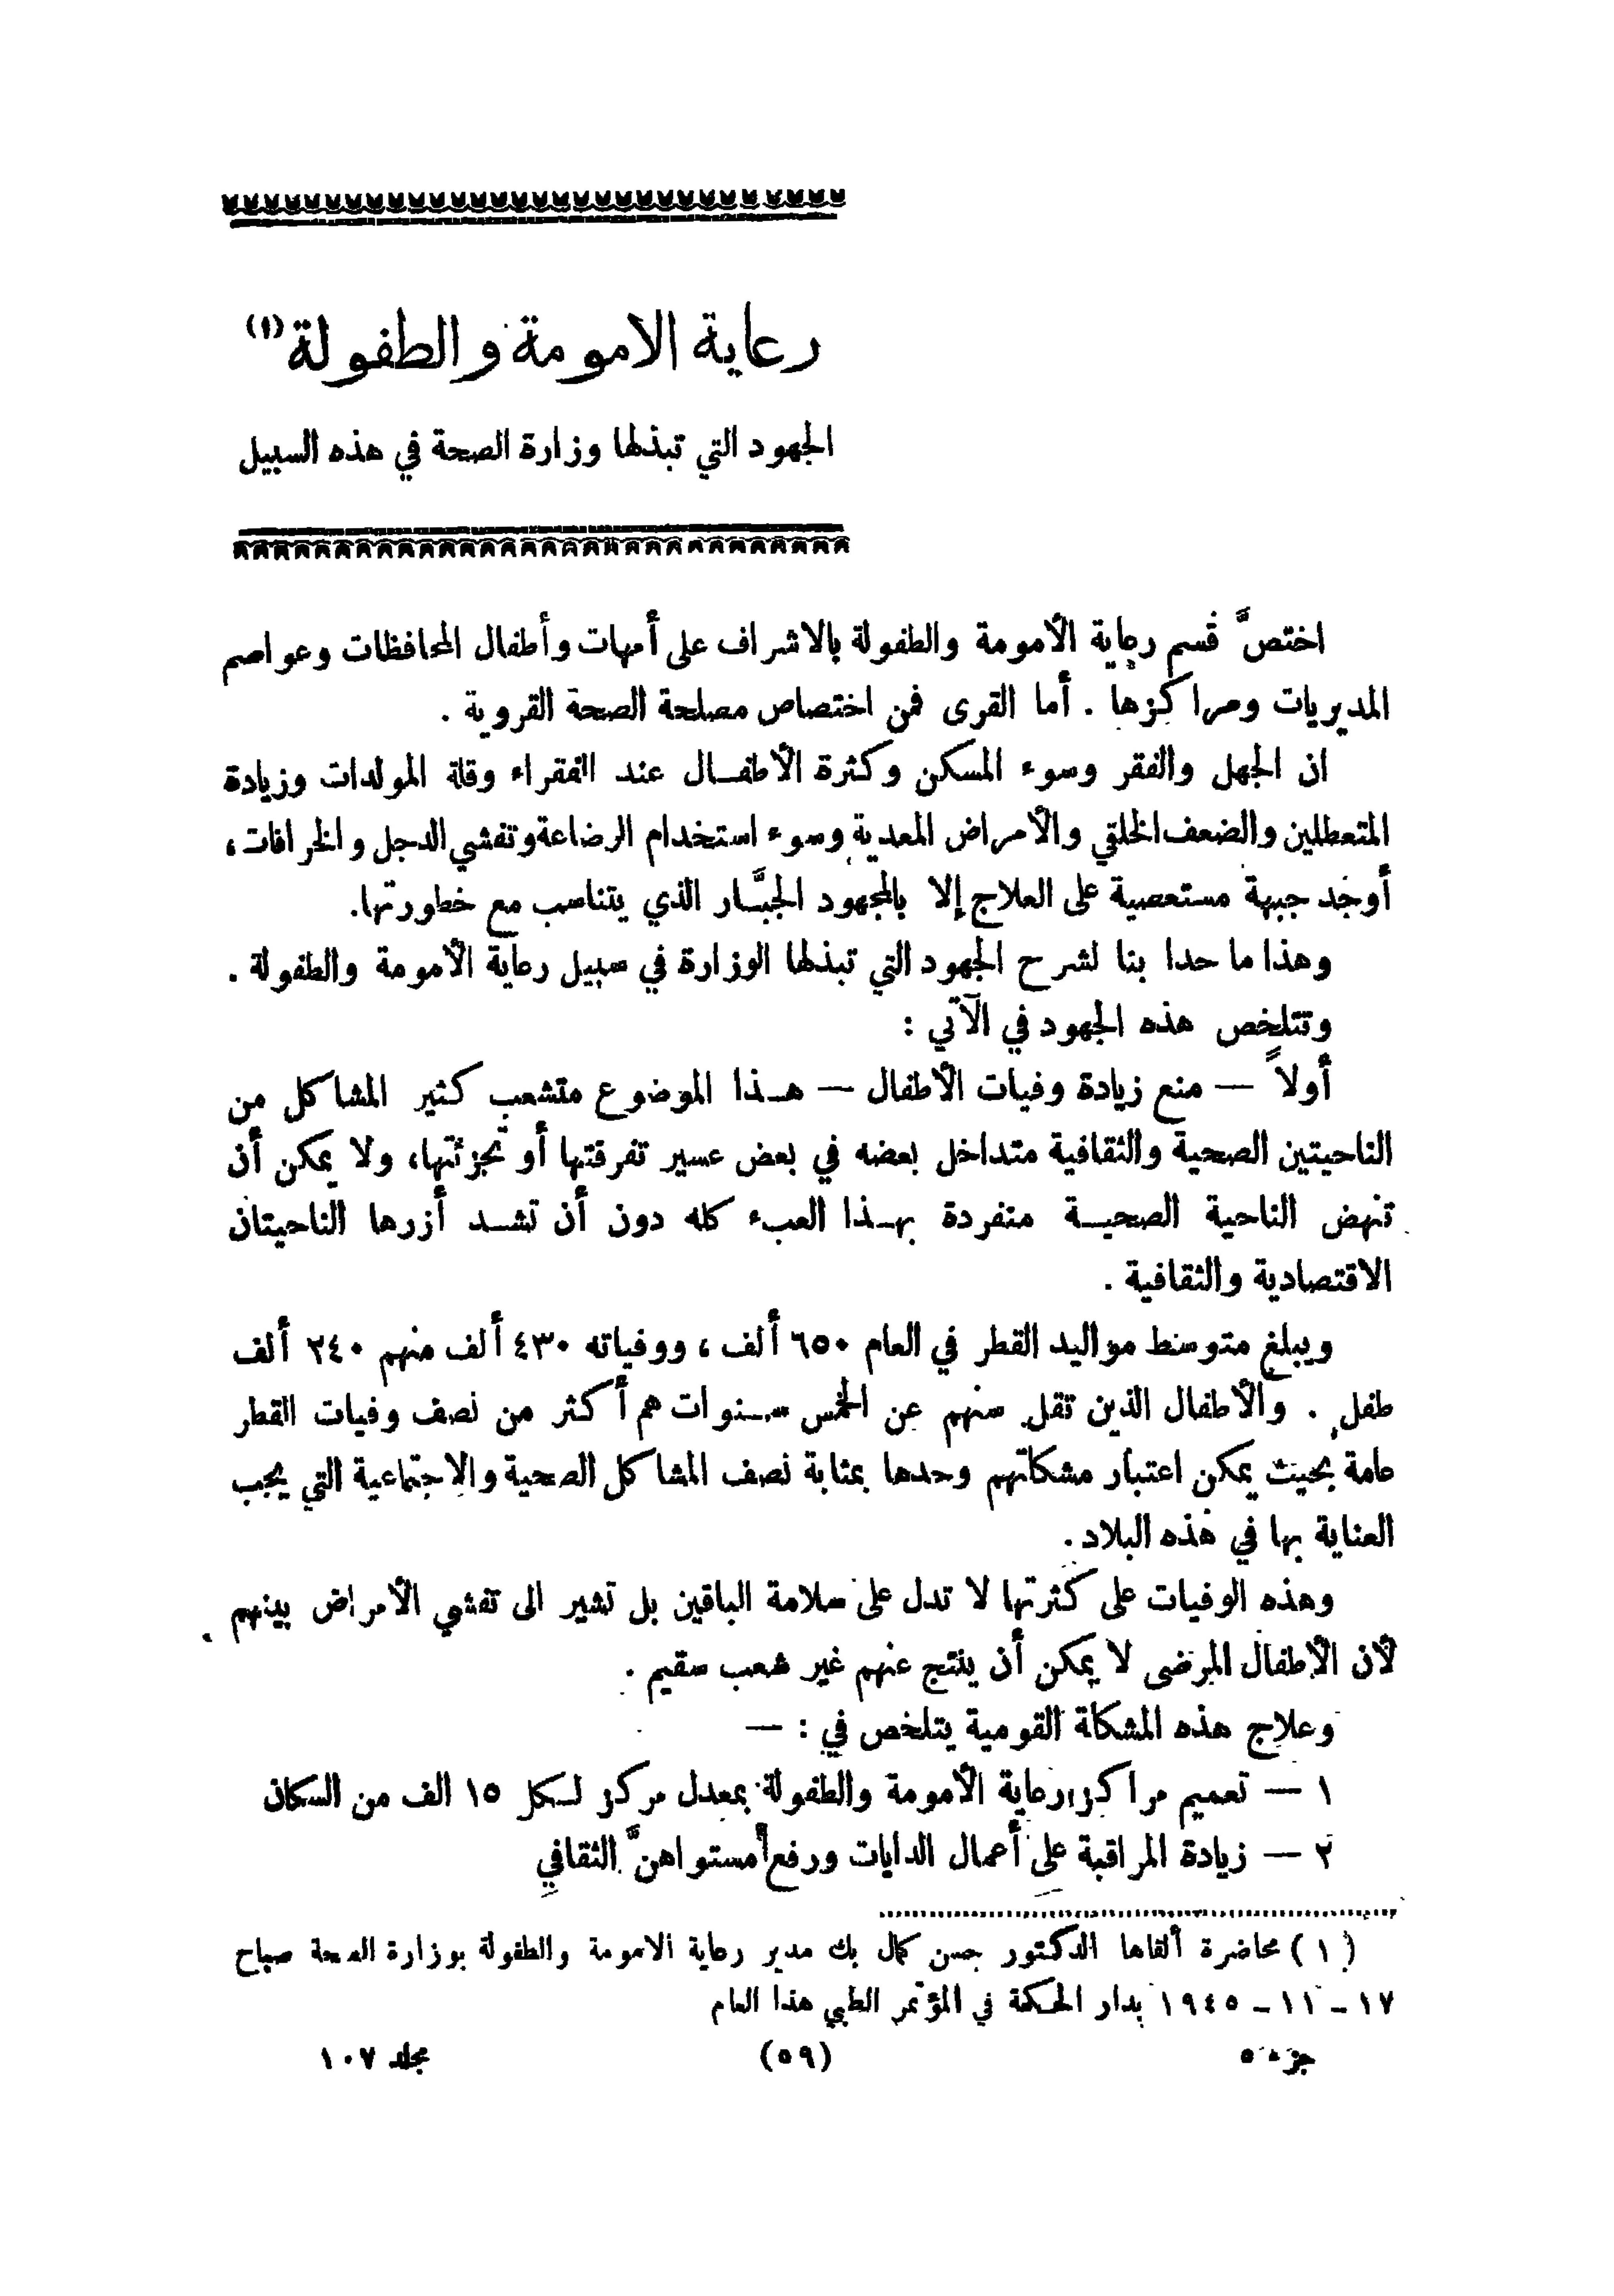 رعاية الامومة والطفولة (١)
الجهود التي تبذلها وزارة الصحة في هذه السبيل
اختصَّ قسم رعاية الأمومة والطفولة بالاشراف على أمهات وأطفال المحافظات وعواصم
المديريات ومراكزها . أما القرى فمن اختصاص مصلحة الصحة القروية .
ان الجهل والفقر وسوء المسكن وكثرة الأطفـال عند الفقراء وقلة المولدات وزيادة
المتعطلين والضعف الخلقي والأمراض المعدية وسوء استخدام الرضاعة وتفشي الدجل والخرافات ،
أوجد جبهة مستعصية على العلاج إلا بالمجهود الجبَّار الذي يتناسب مع خطورتها.
وهذا ما حدا بنا لشرح الجهود التي تبذلها الوزارة في سبيل رعاية الأمومة والطفولة .
وتتلخص هذه الجهود في الآتي :
أولاً — منع زيادة وفيات الأطفال — هـذا الموضوع متشعب كثير المشاكل من
الناحيتين الصحية والثقافية متداخل بعضه في بعض عسير تفرقتها أو تجزئتها، ولا يمكن أن
تنهض الناحية الصحيـة منفردة بهـذا العبء كله دون أن تشـد أزرها الناحيتان
الاقتصادية والثقافية .
ويبلغ متوسط مواليد القطر في العام ٦٥٠ ألف ، ووفياته ٤٣٠ ألف منهم ٢٤٠ ألف
طفل . والأطفال الذين تقل سنهم عن الخمس سـنوات هم أكثر من نصف وفيات القطر
عامة بحيث يمكن اعتبار مشكلتهم وحدها بمثابة نصف المشاكل الصحية والاجتماعية التي يجب
العناية بها في هذه البلاد .
وهذه الوفيات على كثرتها لا تدل على سلامة الباقين بل تشير الى تفشي الأمراض بينهم
لأن الأطفال المرضى لا يمكن أن ينتج عنهم غير شعب سقيم .
وعلاج هذه المشكلة القومية يتلخص في : —
١ — تعميم مراكز رعاية الأمومة والطفولة بمعدل مركز لـكل ١٥ الف من السكان
٢ — زيادة المراقبة على أعمال الدايات ورفع مستواهنَّ الثقافي
(١) محاضرة ألقاها الدكتور حسن كمال بك مدير رعاية الامومة والطفولة بوزارة الصحة صباح
١٧ - ١١ - ١٩٤٥ بدار الحكمة في المؤتمر الطبي هذا العام
جزء ٥ (٥٩) مجلد ١٠٧